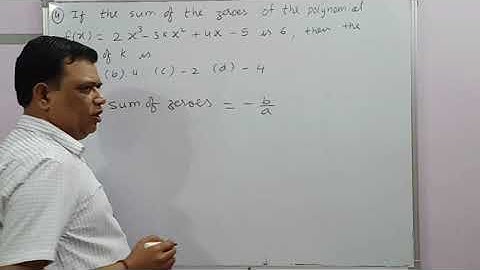 ④ If the sum of the zeroes of the polynomial
f(x) = 2x³ - 3kx² + 4x - 5 is 6, then the
of k is
(b) 4 (c) - 2 (d) - 4
sum of zeroes = - b/a